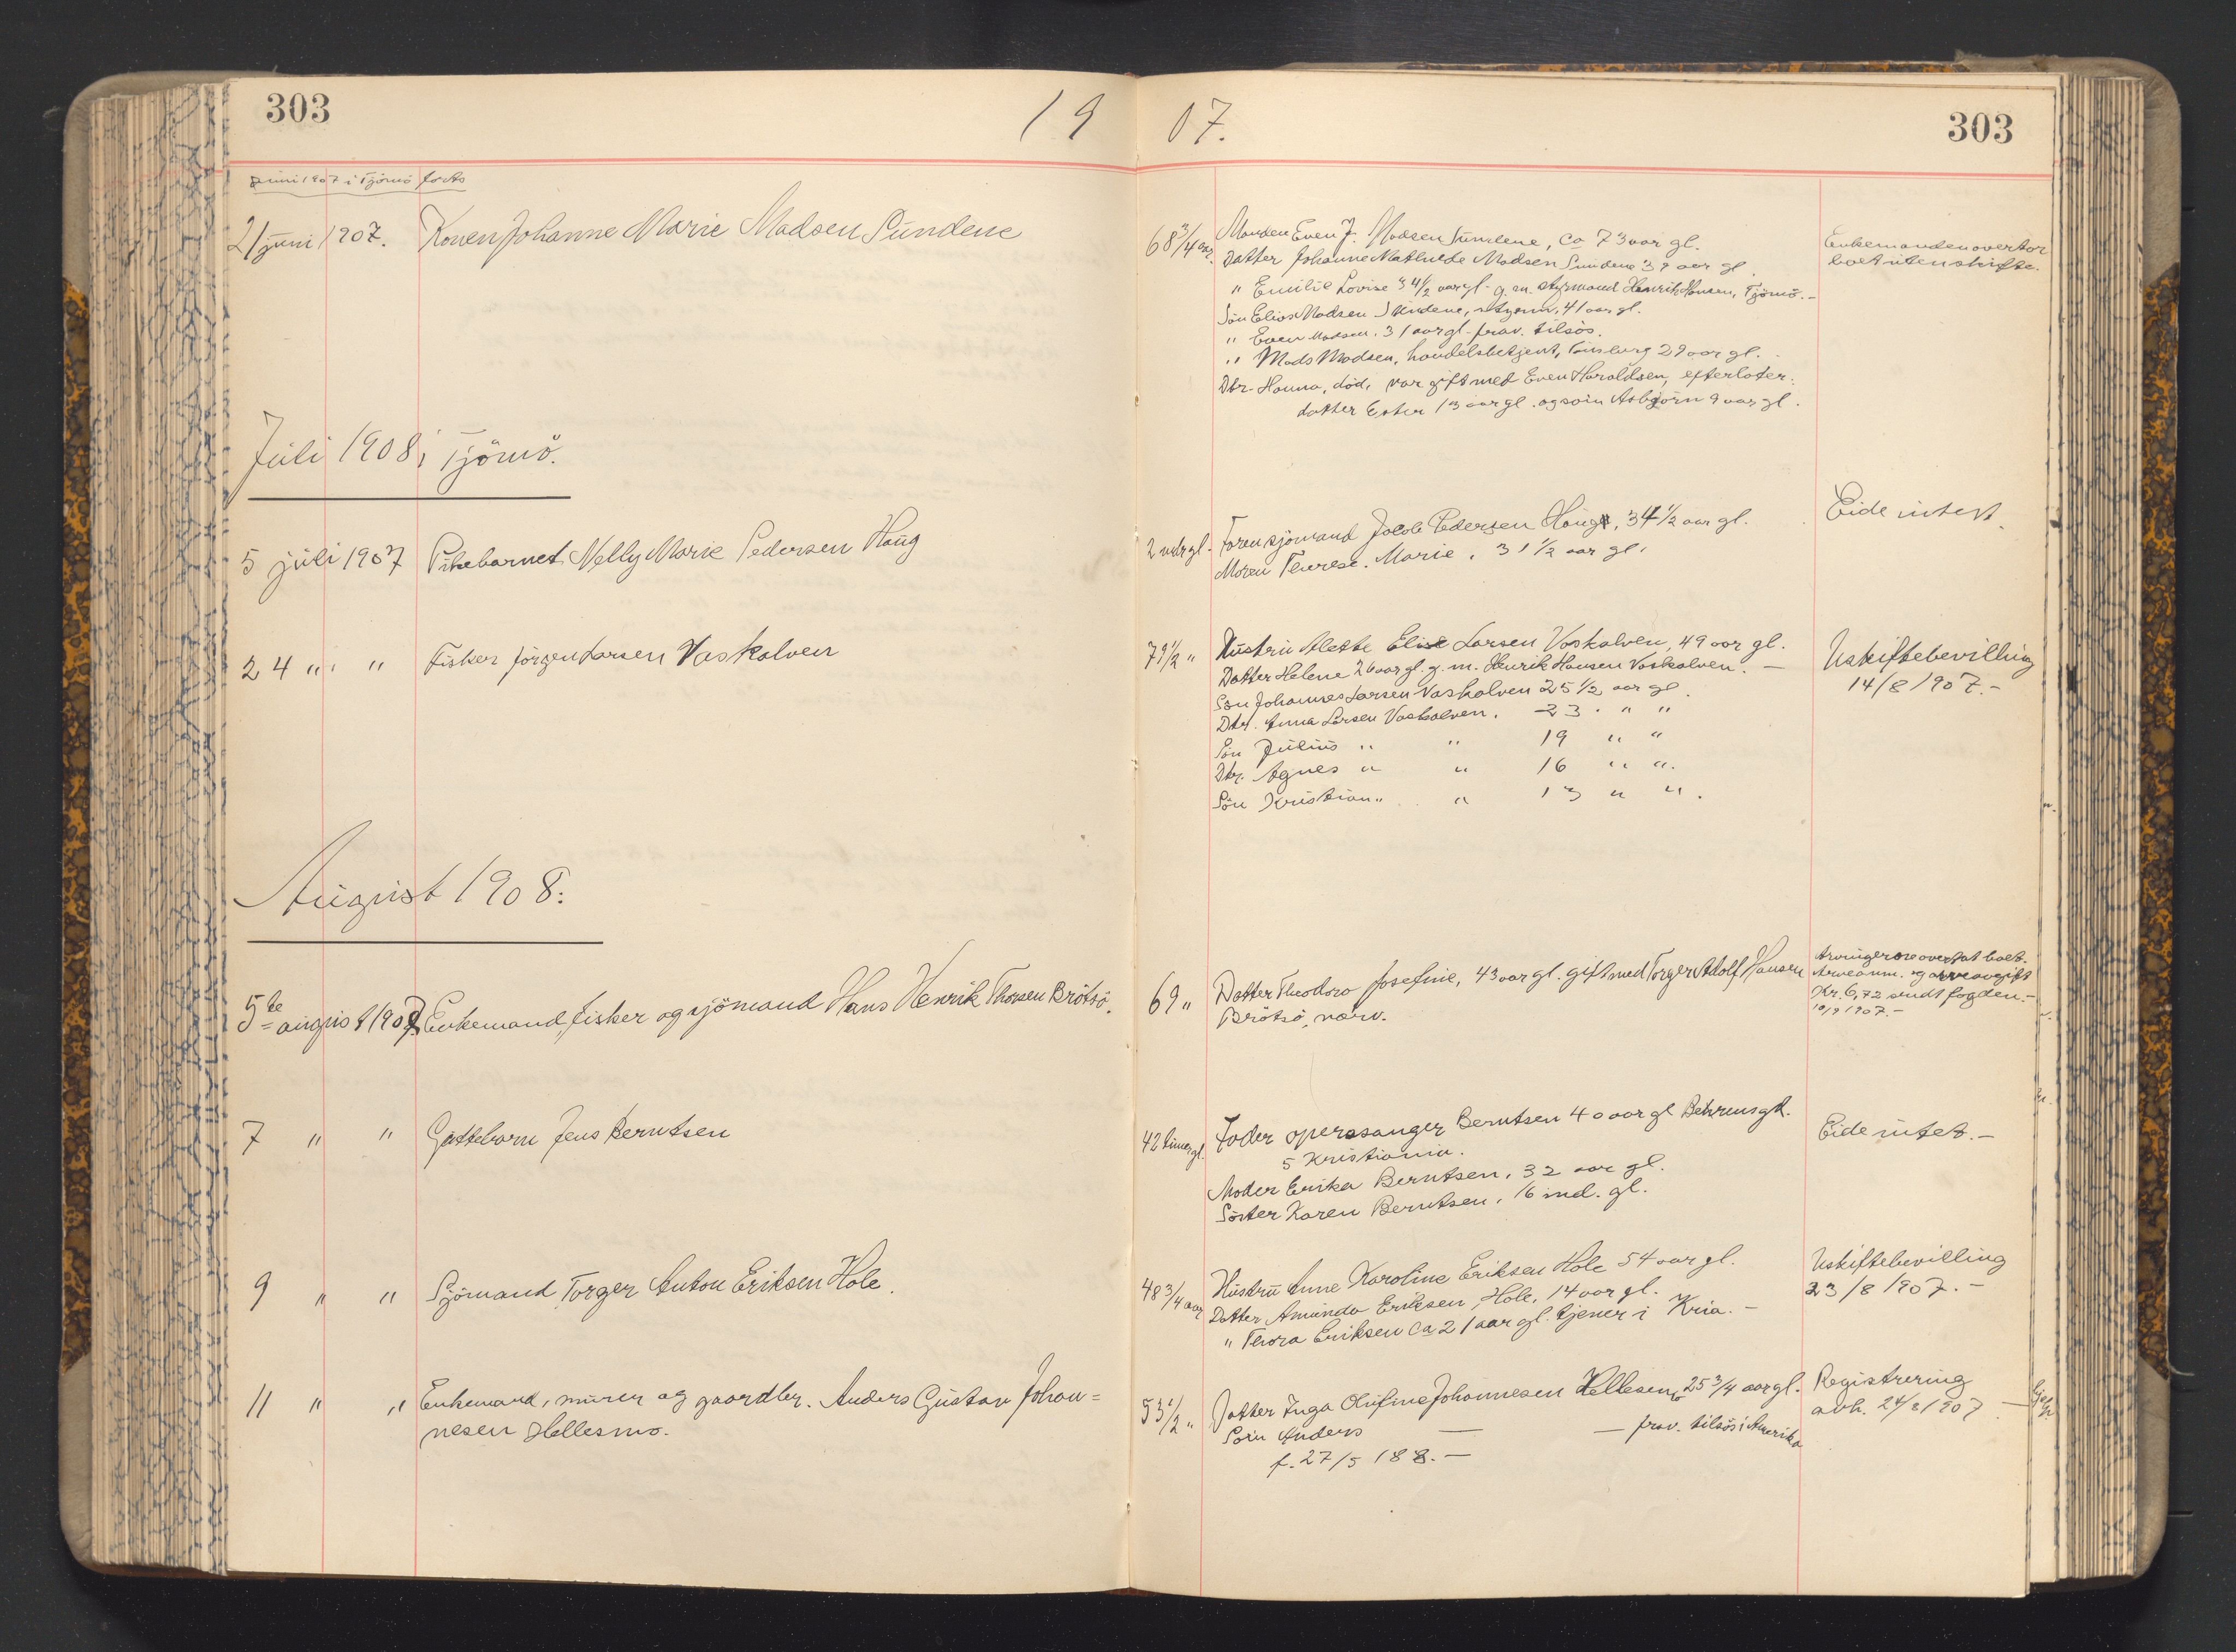 303
1907.
303
Juni 1907 i Tjömö forts
21 juni 1907. Konen Johanne Marie Madsen Sundene
68 3/4 aar. Manden Even J. Madsen Sundene, ca 73 aar gl.
Datter Johanne Mathilde Madsen Sundene 39 aar gl.
" Emilie Lovise 34 1/2 aar gl. g. m. styrmand Henrik Hansen, Tjömö.-
Sön Elias Madsen Sundene, styrm, 41 aar gl.
" Even Madsen, 31 aar gl. frav. tilsös.
" Mads Madsen, handelsbetjent, Tönsberg 29 aar gl.
Dtr. Hanna, död, var gift med Even Haraldsen, efterlater:
datter Ester 13 aar gl. og sön Asbjörn 9 aar gl.
Enkemanden overtar
boet uten skifte.
Juli 1908 i Tjömö.
5 juli 1907 Pikebarnet Nelly Marie Pedersen Haug
2 mdr gl. Faren sjömand Jacob Pedersen Haug, 34 1/2 aar gl.
Moren Therese Marie, 31 1/2 aar gl.
Eide intet.
24 " " Fisker Jörgen Larsen Vaskalven
79 1/2 " Hustru Alette Elise Larsen Vaskalven, 49 aar gl.
Datter Helene 26 aar gl. g. m. Henrik Hansen Vaskalven. -
Sön Johannes Larsen Vaskalven 25 1/2 aar gl.
Dtr. Anna Larsen Vaskalven. 23 " "
Sön Julius " " 19 " "
Dtr. Agnes " " 16 " ".
Sön Kristian " " 13 " ".
Uskiftebevilling
14/8 1907.-
August 1908:
5te august 1907 Enkemand, fisker og sjömand Hans Henrik Thorsen Brötsö.
69 " Datter Theodora Josefine, 43 aar gl. gift med Torger Adolf Hansen
Brötsö, nærv.
Arvingerne overtat boet.
Arveanm. og arveavgift
Kr. 6,72 sendt fogden.-
10/9 1907.-
7 " " Gutteborn Jens Berntsen
42 timer gl. Fader operasanger Berntsen 40 aar gl Behrensgt.
5 Kristiania.
Moder Erika Berntsen, 32 aar gl.
Söster Karen Berntsen, 16 md. gl.
Eide intet.-
9 " " Sjömand Torger Anton Eriksen Hole.
48 3/4 aar Hustru Anne Karoline Eriksen Hole 54 aar gl.
Datter Amunda Eriksen Hole, 14 aar gl.
" Thora Eriksen ca 21 aar gl. tjener i Kria. -
Uskiftebevilling
23/8 1907.-
11 " " Enkemand, murer og gaardbr. Anders Gustav Johan=
nesen Hellesmo.
53 1/2 " Datter Inga Olufine Johannesen Hellesmo, 25 3/4 aar gl.
Sön Anders — — frav. tilsös i Amerika
f. 27/5 188 .-
Registrering
avh. 24/8 1907